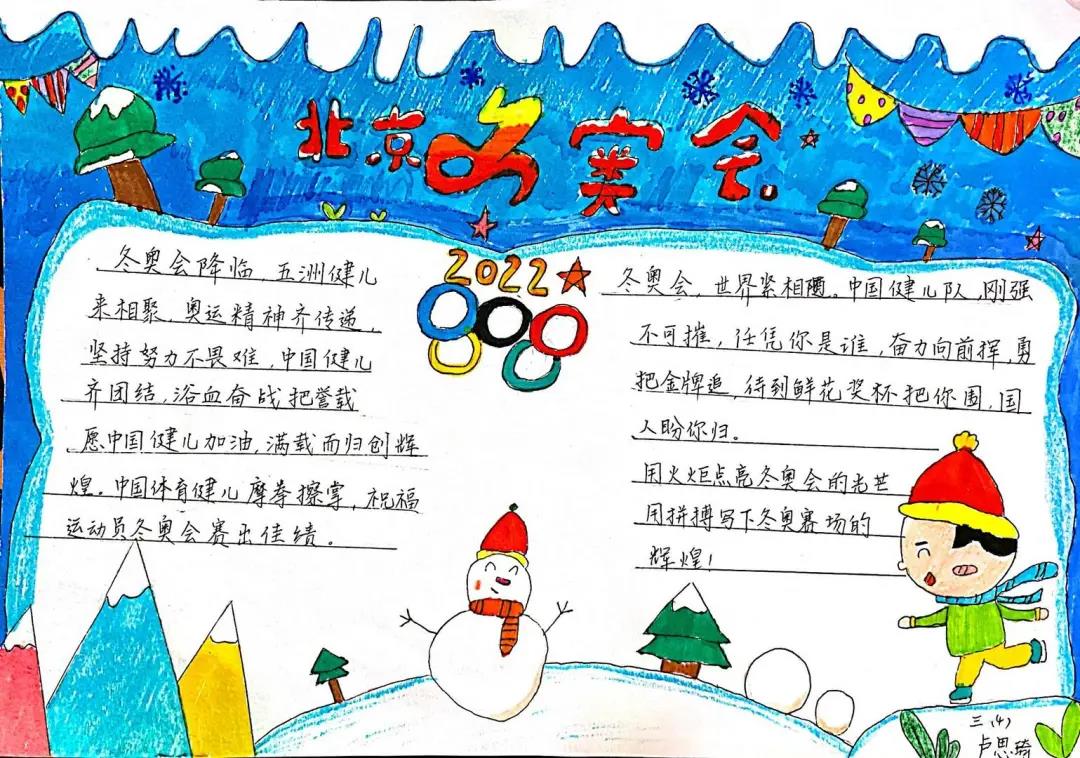 北京冬奥会
2022
冬奥会降临,五洲健儿
来相聚,奥运精神齐传递,
坚持努力不畏难,中国健儿
齐团结,浴血奋战把誉载
愿中国健儿加油,满载而归创辉
煌。中国体育健儿摩拳擦掌,祝福
运动员冬奥会赛出佳绩。
冬奥会,世界紧相随。中国健儿队,刚强
不可摧,任凭你是谁,奋力向前挥,勇
把金牌追,待到鲜花奖杯把你围,国
人盼你归。
用火炬点亮冬奥会的光芒
用拼搏写下冬奥赛场的
辉煌!
三(4)
卢思琦